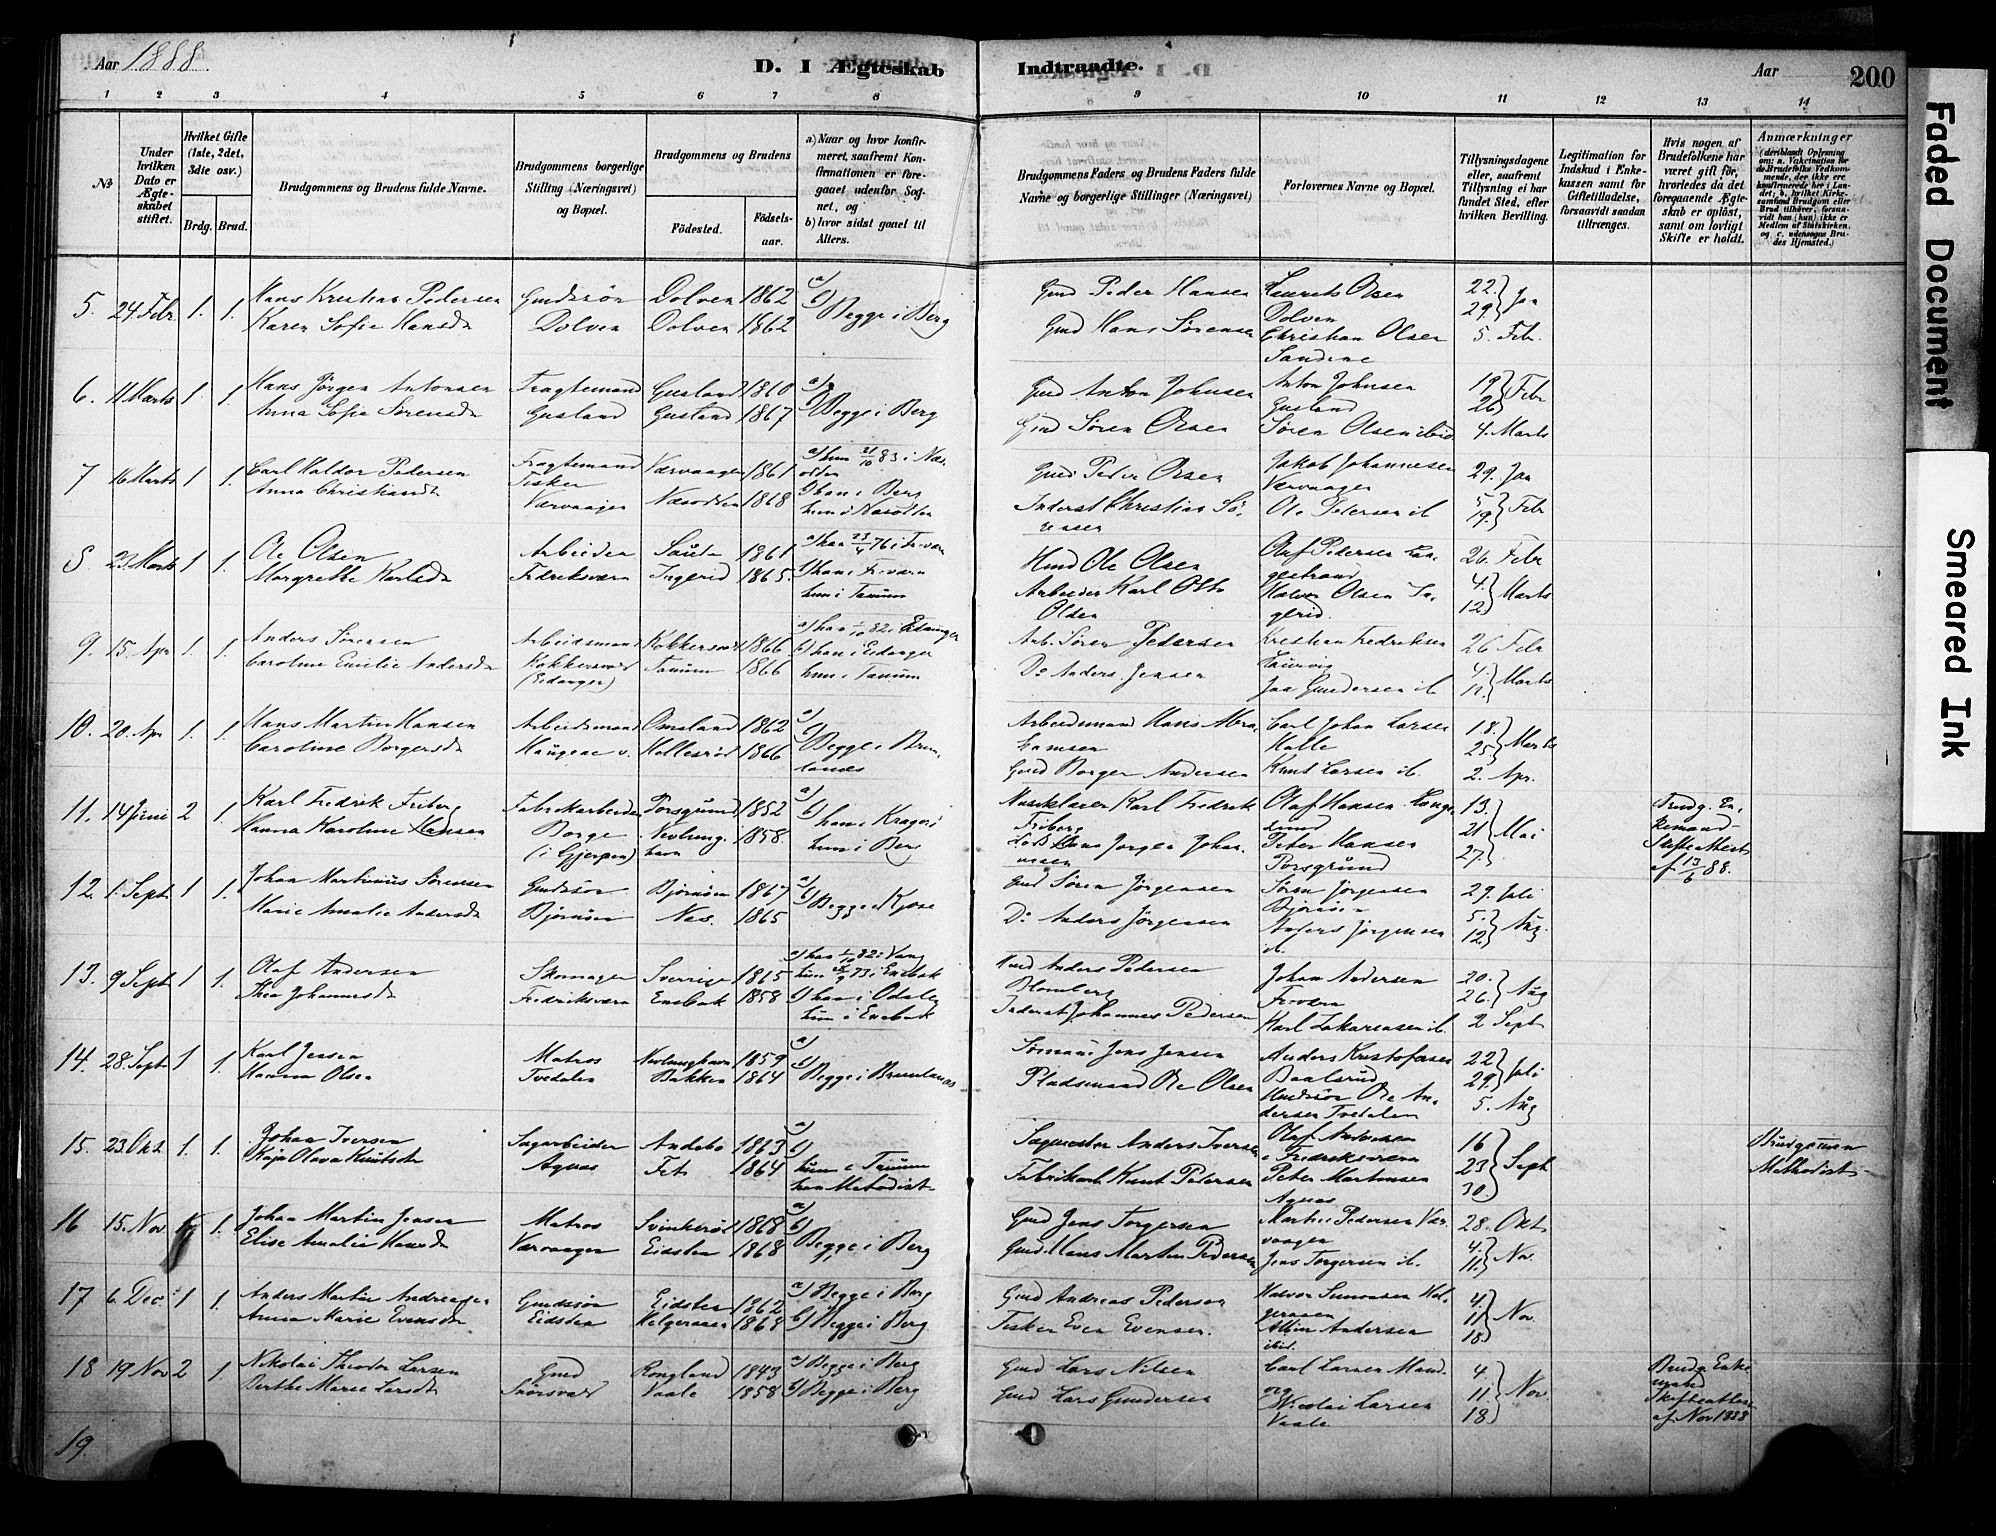 Aar 1888.
D. I Ægteskab Indtraadte.
Aar
200
1 2 3 4 5 6 7 8 9 10 11 12 13 14
№
Under hvilken Dato er Ægteskabet stiftet.
Hvilket Gifte (1ste, 2det, 3die osv.)
Brdg. Brud.
Brudgommens og Brudens fulde Navne.
Brudgommens borgerlige Stilling (Næringsvei) og Bopæl.
Brudgommens og Brudens
Fødested.
Fødsels-aar.
a) Naar og hvor konfirmeret, saafremt Konfirmationen er foregaaet udenfor Sognet, og
b) hvor sidst gaaet til Alters.
Brudgommens Faders og Brudens Faders fulde Navne og borgerlige Stillinger (Næringsvei)
Forlovernes Navne og Bopæl.
Tillysningsdagene eller, saafremt Tillysning ei har fundet Sted, efter hvilken Bevilling.
Legitimation for Indskud i Enkekassen samt for Giftetilladelse, forsaavidt saadan tiltrænges.
Hvis nogen af Brudefolkene har været gift før, hvorledes da det foregaaende Ægteskab er opløst, samt om lovligt Skifte er holdt.
Anmærkninger
5. 24 Febr 1. 1. Hans Kristian Pedersen Gmdssøn Dolven 1862 a) b) Begge i Berg Gmd Peder Hansen Laurits Olsen Dolven 22. 29. Jan
Karen Sofie Hansdr Dolven Dolven 1862 Gmd Hans Sørensen Christian Olsen Sandene 5. Febr.
6. 11 Marts 1. 1. Hans Jørgen Antonsen Fragtemand Gusland 1860 a) b) Begge i Berg Gmd Anton Johnsen Anton Johnsen Gusland 19. 26. Febr
Anna Sofie Sørensdr Gusland Gusland 1867 Gmd Søren Olsen Søren Olsen ibid 4. Marts
7 16 Marts 1 1. Carl Haldor Pedersen Fragtemand Fisker Værvaagen 1861 a) hun 21/10 83 i Næsodden Gmd Peder Olsen Jakob Johannesen Værvaagen 29. Jan
Anna Christiansdr Værvaagen Næsodden 1868 b) han i Berg hun i Næsodden Inderst Christian Sørensen Ole Pedersen ib 5. 19. Febr
8. 23 Marts 1 1. Ole Olsen Arbeider 1861 a) han 23/4 76 i Fr.værn Ole Olsen Olaf Pedersen Langestrand 26. Febr
Margrethe Karlsdr Fredriksværn Ingerid 1865. b) han i Fr.værn hun i Tanum Arbeider Karl Otto Olsen Halvor Olsen Ingerid. 4. 12. Marts
9. 15. Apr 1. 1. Anders Sørensen Arbeidsmand 1866 a) han 1/10 82 i Eidanger Arb. Søren Pedersen Kristian Fredriksen Laurvig 26 Febr
Caroline Emilie Andersdr (Eidanger) Tanum 1866 b) han i Eidanger hun i Tanum Do Anders Jensen Gundersen ib 4. 11. Marts
10. 20. Apr 1. 1. Hans Martin Hansen Arbeidsmand Omsland 1862 a) b) Begge i Brunlanes Arbeidsmand Hans Abrahamsen Carl Johan Larsen Halle 18. 25. Marts
Caroline Borgersdr Haugene v. 1866 Gmd Borger Andersen Knut Larsen ib. 2. Apr.
11. 14 Juni 2 1. Karl Fredrik Friberg Fabrikarbeider Porsgrund 1852 a) b) han i Kragerø Karl Fredrik Friberg Olaf Hansen 13. 21 Mai
Hanna Karoline Hansen Borge (i Gjerpen) Nevlunghavn 1858. hun i Berg Hans Jørgen Johannesen Peter Hansen Porsgrund 27. Brudg. Enkemand Skifteattest af 13/6 88.
12. 1. Sept 1 1. Johan Martinius Sørensen Gmdssøn Bjørnøen 1867 a) b) Begge i Kjose Gmd Søren Jørgensen Søren Jørgensen Bjørnøen 29. Juli
Marie Amalie Andersdr Bjørnøen Nes. 1865 Do Anders Jørgensen Anders Jørgensen ib. 5. 12. Aug.
13. 9 Sept 1 1. Olaf Andersen Skomager Sverrige 1865 a) han 1/10 82 i Vang hun 73 i Enebak Anders Pedersen Blomberg Johan Andersen Fr.værn 20. 26. Aug
Thea Johannesdr Fredriksværn Enebak 1858 b) han i Odalen hun i Enebak Inderst Johannes Pedersen Karl Zakariasen ib. 2 Sept
14. 28. Sept 1 1. Karl Jensen Matros Nevlunghavn 1859 a) b) Begge i Brunlanes Sømand Jens Jensen Anders Kristofersen Baalsrud 22. 29. Juli
Hanna Olsen Tvedalen Bakken 1864 Pladsmand Ole Olsen Ole Andersen Tvedalen 5. Aug
15. 23. Okt. 1. 1. Johan Iversen Sagarbeider Andebo 1863 a) b) Sagmester Anders Iversen Olaf Andersen i Fredriksværn 16 23 Sept
Kaja Olava Knutsdr Agnes 1864 hun i Tanum han Metodist Fabrikarb Knut Pedersen Peter Martinsen Agnes 30. Brudgommen Methodist
16 15. Nov 1. 1. Johan Martin Jensen Matros 1868 a) b) Begge i Berg Gmd Jens Torgersen Martin Pedersen Værvaagen 28. Okt
Elise Amalie Hansdr Værvaagen Eidsten 1868 Gmd. Hans Martin Pedersen Jens Torgersen ib. 4. 11. Nov.
17 6. Dec. 1 1. Anders Martin Andreasen Gmdssøn Eidsten 1862 a) Begge i Berg Gmd Andreas Pedersen Halvor Simonsen Helgeraaen 4. 11 Nov.
Anna Marie Evensdr Eidsten Helgeraaen 1868 b) Begge i Berg Fisker Even Evensen. Andersen ibid. 18.
18 19 Nov 2 1. Nikolai Theodor Larsen Gmd 1843 a) Begge i Berg Gmd Lars Nilsen Carl Larsen 4. 11. Nov.
Berthe Marie Larsdr Vaale 1858 b) Begge i Berg Gmd Lars Gundersen Nicolai Larsen Vaale 18 Brudg. Enkemand Skifteattest af Nov 1888
19.
Faded Document
Smeared Ink